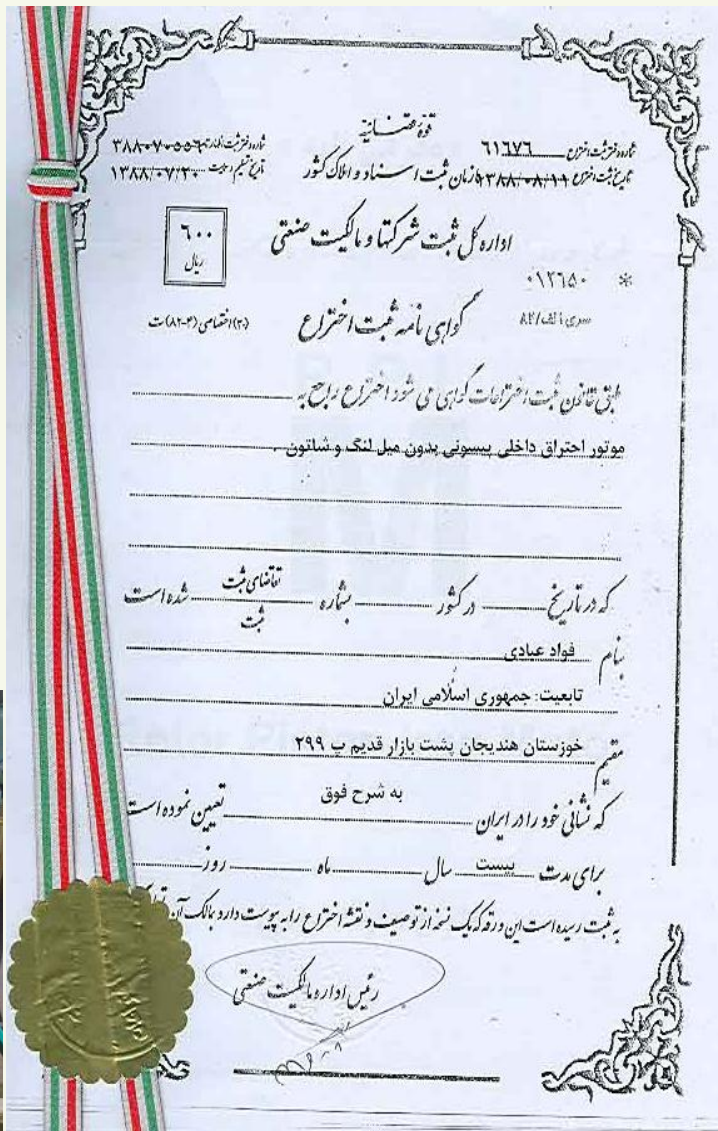 قوه قضائیه
شماره و دفتر ثبت اختراع ۶۱۶۷۶
شماره و دفتر ثبت اظهارنامه ۳۸۸۰۷۰۵۵۶
تاریخ ثبت اختراع ۱۳۸۸/۰۸/۱۹
سازمان ثبت اسناد و املاک کشور
تاریخ تسلیم ۱۳۸۸/۰۷/۲۰
اداره کل ثبت شرکتها و مالکیت صنعتی
۶۰۰
ریال
* ۰۱۲۶۵۰
سری الف/۸۲
گواهی نامه ثبت اختراع
(۲۰) اختصاصی (۴-۸۲) ث
طبق قانون ثبت اختراعات گواهی می شود اختراع راجع به
موتور احتراق داخلی پیسونی بدون میل لنگ و شاتون .
که در تاریخ در کشور بشماره تقاضای ثبت شده است
ثبت
بنام فواد عبادی
تابعیت: جمهوری اسلامی ایران
مقیم خوزستان هندیجان پشت بازار قدیم پ ۲۹۹
که نشانی خود را در ایران به شرح فوق تعیین نموده است
برای مدت بیست سال ماه روز
به ثبت رسیده است این ورقه که یک نسخه از توصیف و نقشه اختراع را به پیوست دارد بمالک آن
رئیس اداره مالکیت صنعتی